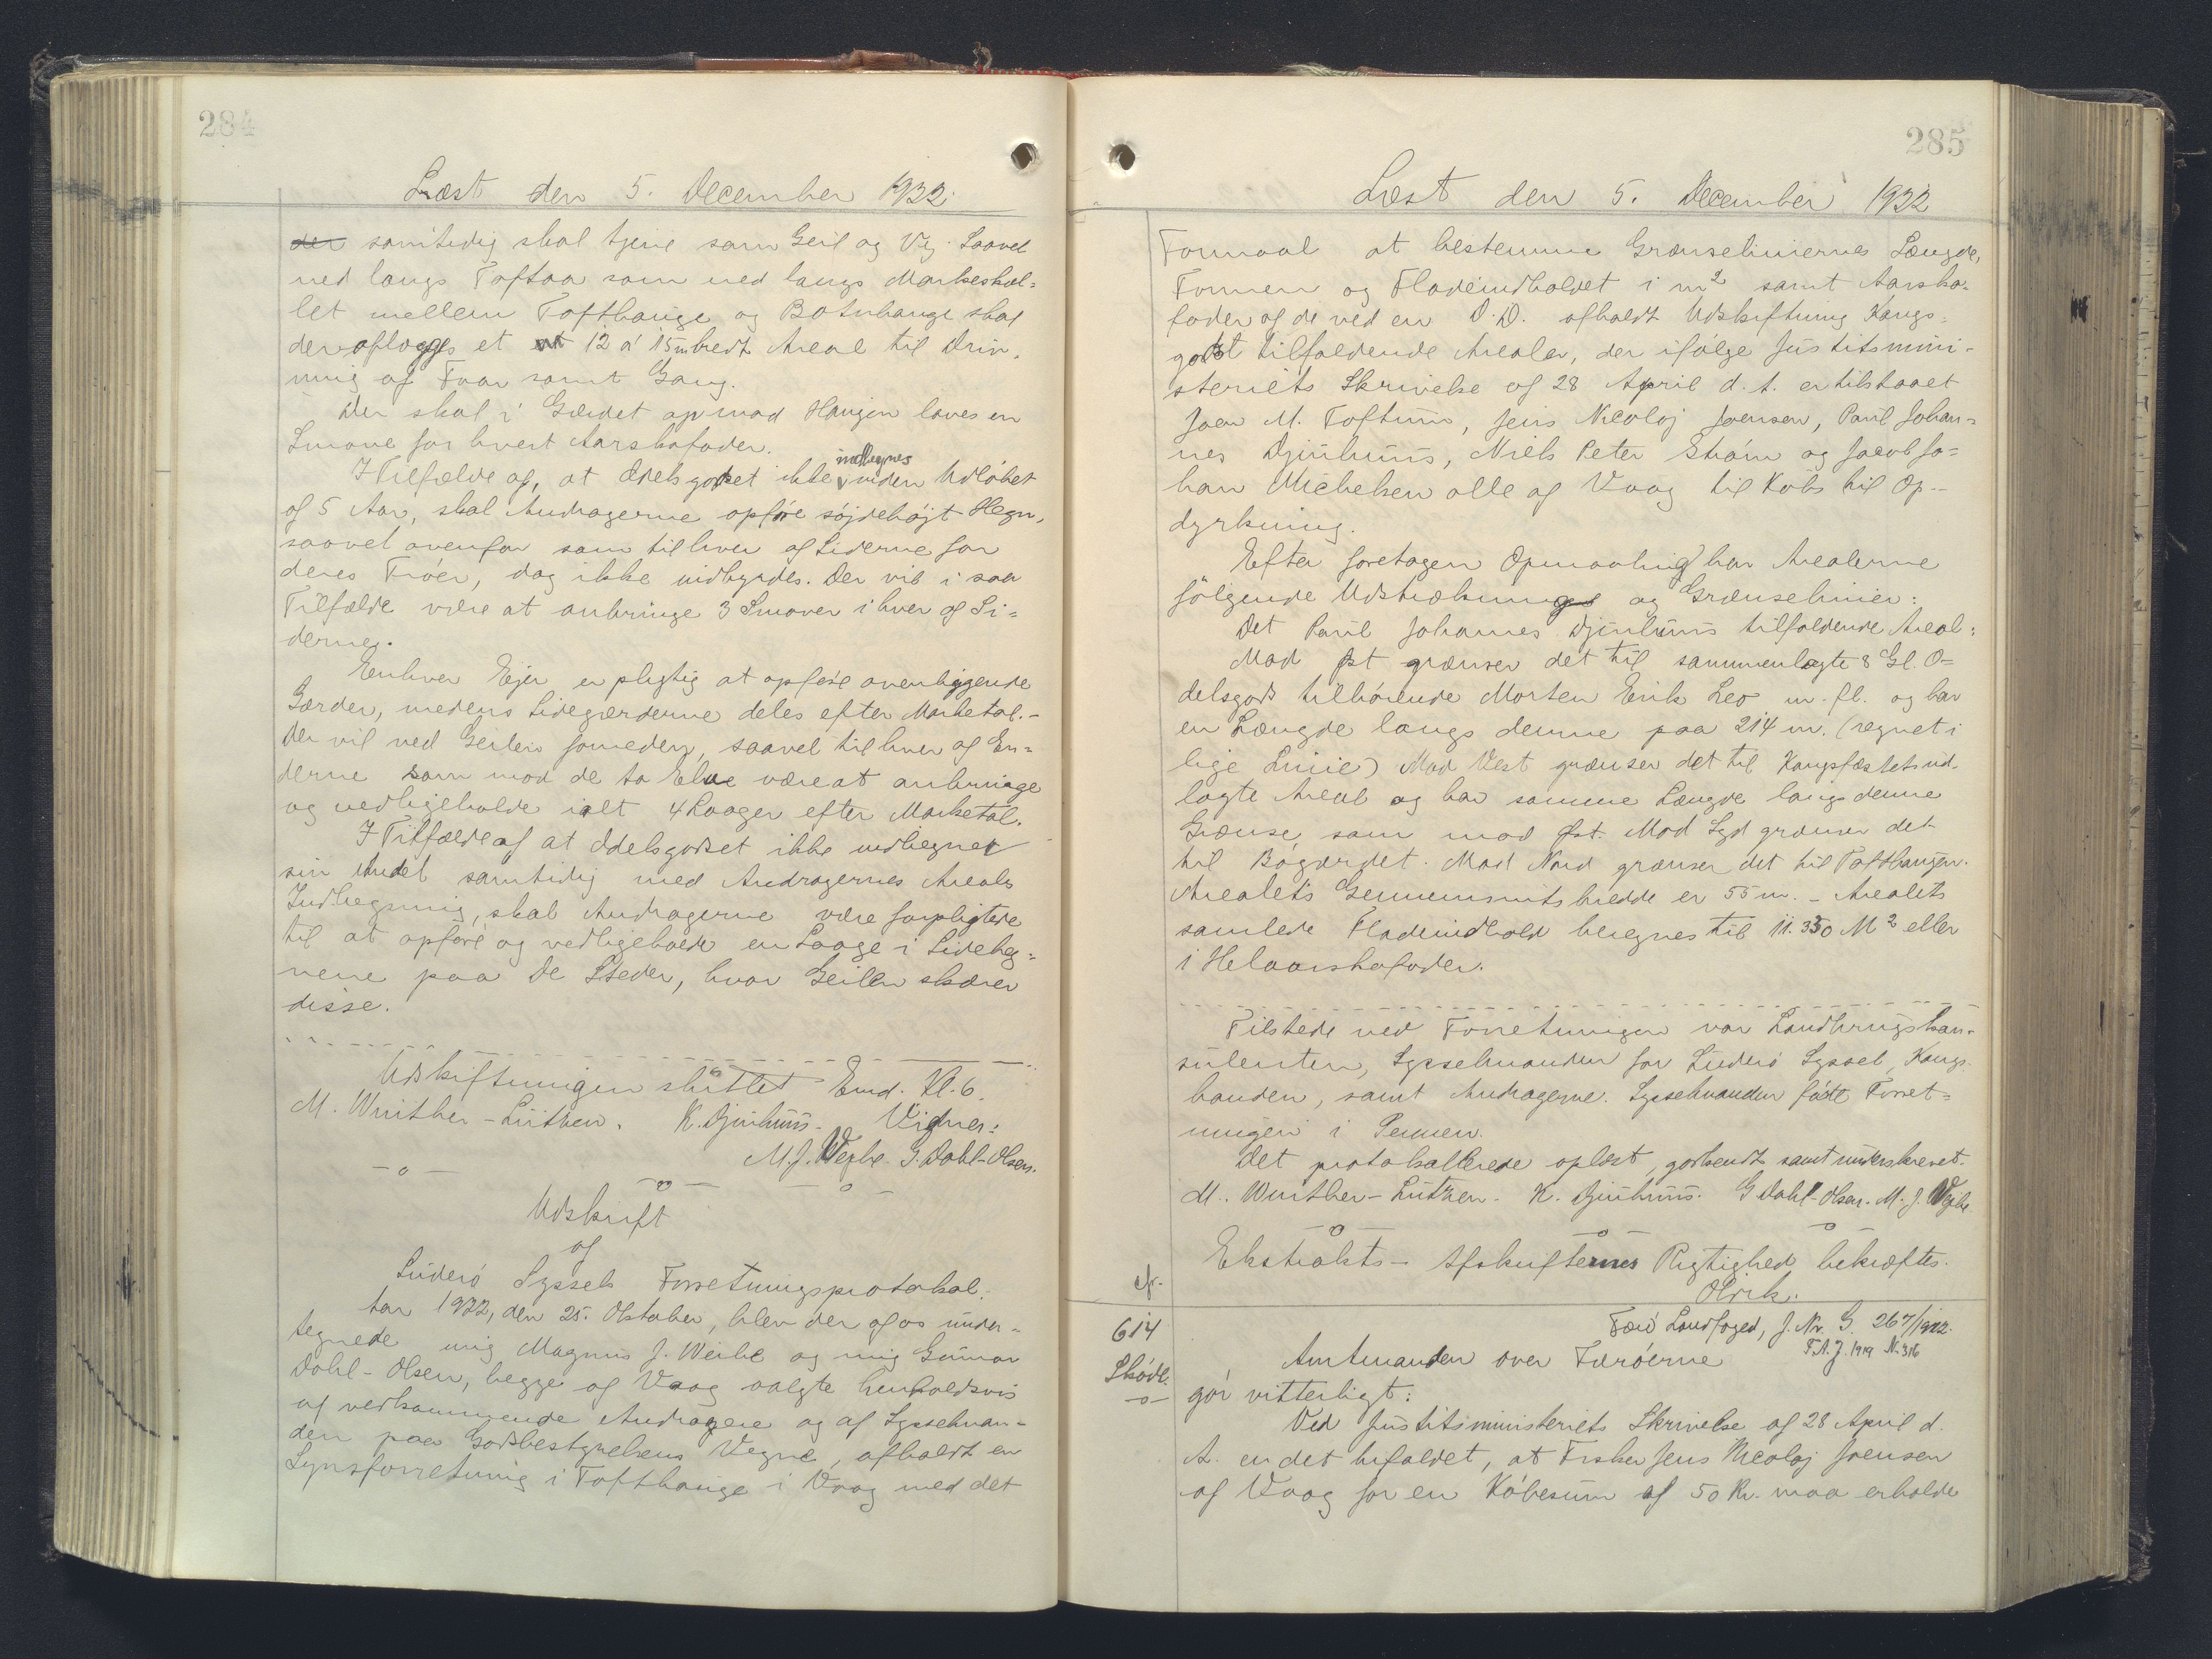 284
Læst den 5. December 1922.
der samtidig skal tjene som Geil og Vej. Saavel
ned langs Toftaa som ned langs Markeskel-
let mellem Tofthauge og Botnhauge skal
der oplægges et 12 a' 15 m bredt Areal til Driv-
ning af Faar samt Gang.
Der skal i Gærdet op mod Haugen laves en
Smove for hvert Aarskofoder.
I Tilfælde af, at Odelsgodset ikke indhegnes inden Udløbet
af 5 Aar, skal Andragerne opføre søjdehøjt Hegn,
saavel ovenfor som til hver af Siderne for
deres Trøer, dog ikke nidbyrdes. Der vil i saa
Tilfælde være at anbringe 3 Smover i hver af Si-
derne.
Enhver Ejer er pligtig at opføre ovenliggende
Gærder, medens Sidegærderne deles efter Marketal.-
Der vil ved Geilen forneden, saavel til hver af En-
derne som mod de to Elve være at anbringe
og vedligeholde ialt 4 Laager efter Marketal.
I Tilfælde af at Odelsgodset ikke indhegner
sin Andel samtidig med Andragernes Areals
Indhegning, skal Andragerne være forpligtede
til at opføre og vedligeholde en Laage i Sideheg-
nene paa de Steder, hvor Geilen skærer
disse.
Udskiftningen sluttet Emd. Kl. 6.
M. Winther-Lützen. K. Djurhuus. Vidner:
M. J. Vejhe. G. Dahl-Olsen.
-o- -o- -o-
Udskrift
af
Suderø Syssels Forretningsprotokol.
Aar 1922, den 25. Oktober, blev der af os under-
tegnede mig Magnus J. Weihe og mig Gunnar
Dahl-Olsen, begge af Vaag valgte henholdsvis
af vedkommende Andragere og af Sysselman-
den paa Godsbestyrelsens Vegne, afholdt en
Synsforretning i Tofthauge i Vaag med det
285
Læst den 5. December 1922
Formaal at bestemme Grænseliniernes Længde,
Formen og Fladeindholdet i m2 samt Aarsko-
foder af de ved en D.D. afholdt Udskiftning Kongs-
godset tilfaldende Arealer, der ifølge Justitsmini-
steriets Skrivelse af 28 April d. A. er tilstaaet
Joen M. Toftum, Jens Nicolaj Joensen, Paul Johan-
nes Djurhuus, Niels Peter Strøm og Jacob Jo-
han Michelsen alle af Vaag til Købs til Op-
dyrkning.
Efter foretagen Opmaaling har Arealerne
følgende Udstrækning og Grænselinier:
Det Paul Johannes Djurhuus tilfaldende Areal:
Mod Øst grænser det til sammenlagte 8 Gl. O-
delsgods tilhørende Morten Erik Leo m. fl. og har
en Længde langs denne paa 214 m. (regnet i
lige Linie) Mod Vest grænser det til Kongsfæstets ud-
lagte Areal og har samme Længde langs denne
Grænse, som mod Øst. Mod Syd grænser det
til Bøgærdet. Mod Nord grænser det til Tofthaugen.
Arealets Gennemsnitsbredde er 55 m. - Arealets
samlede Fladeindhold beregnes til 11.350 M2 eller
i Helaarskofoder.
Tilstede ved Forretningen var Landbrugskon-
sulenten, Sysselmanden for Suderø Syssel, Kongs-
bonden, samt Andragerne. Sysselmanden førte Forret-
ningen i Pennen.
Det protokollerede oplæst, godkendt samt underskrevet.
M. Winther-Lützen. K. Djurhuus. G Dahl-Olsen. M. J. Vejhe
-o- -o- -o-
Ekstrakts-Afskrifternes Rigtighed bekræftes.
Olrik.
cfr.
614
Skøde
-o-
Færø Landfoged, J. Nr. G. 267/1922.
F.A.J. 1919 N. 316
Amtmanden over Færøerne
gør vitterligt:
Ved Justitsministeriets Skrivelse af 28 April d.
A. er det bifaldet, at Fisker Jens Nicolaj Joensen
af Vaag for en Købesum af 50 Kr. maa erholde